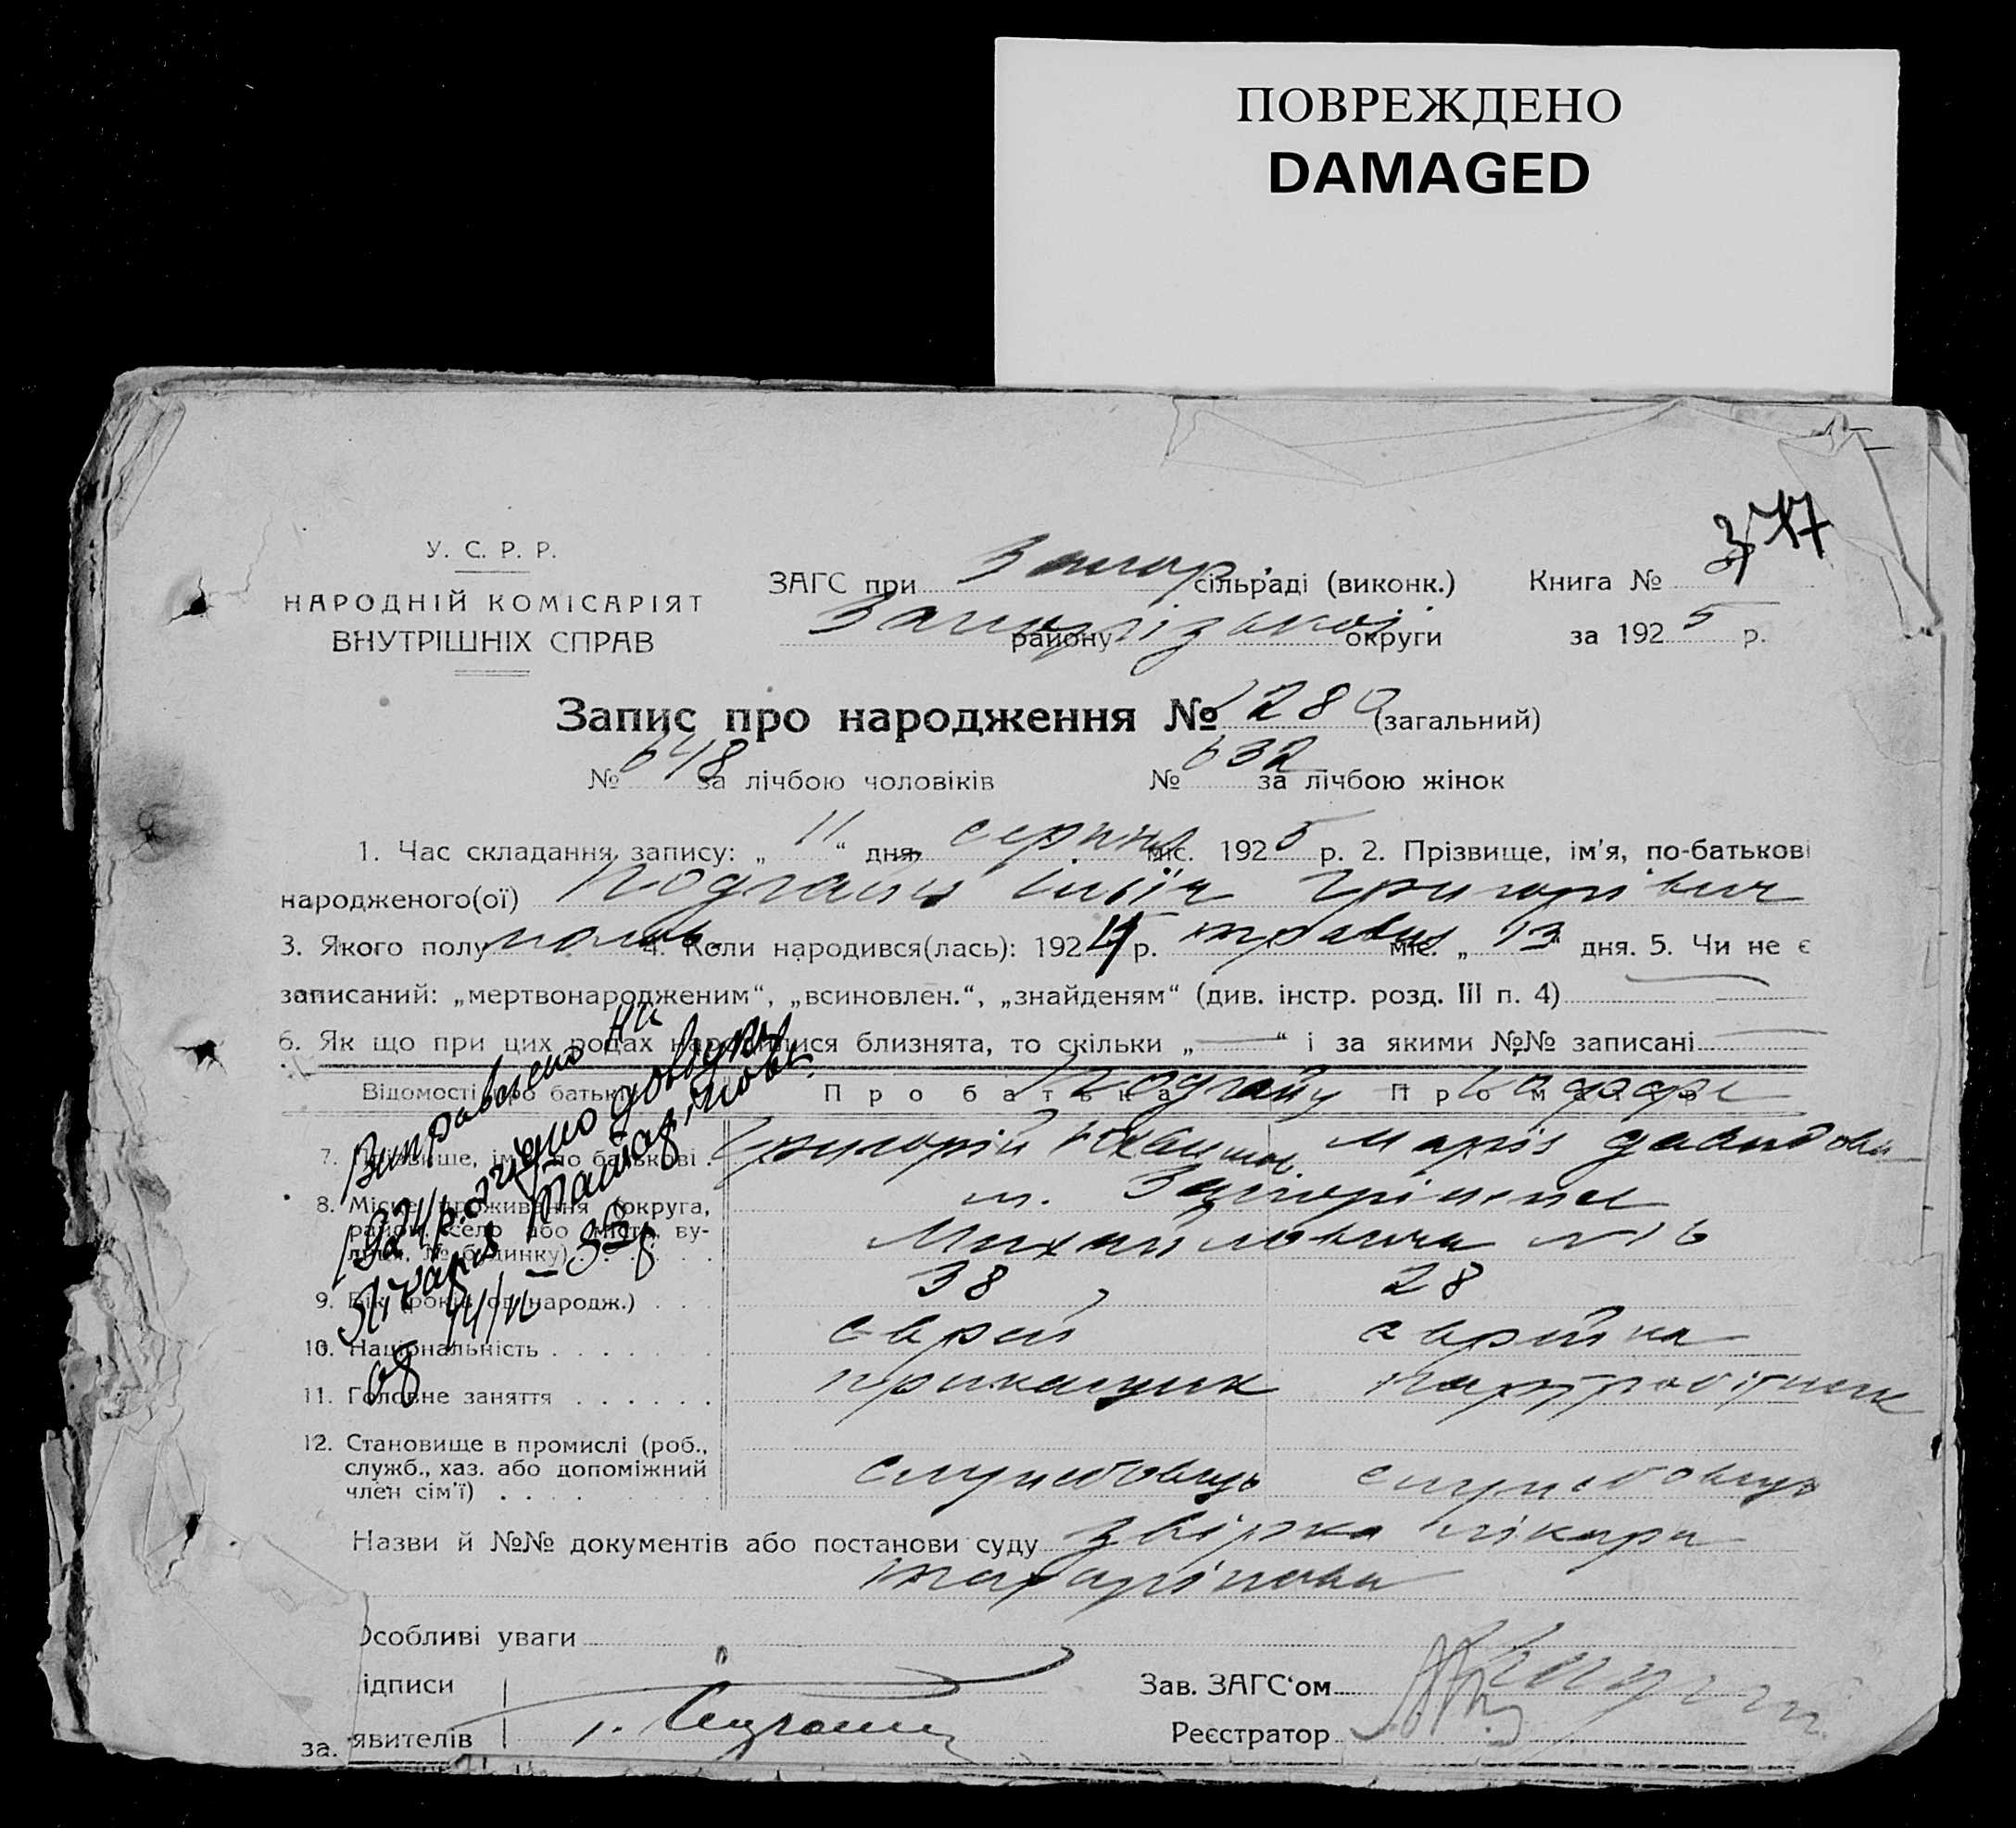 ПОВРЕЖДЕНО
DAMAGED
У. С. Р. Р.
НАРОДНІЙ КОМІСАРІЯТ
ВНУТРІШНІХ СПРАВ
ЗАГС при Запор. сільраді (виконк.)
Запорізької району округи
Книга №
за 1925 р.
Запис про народження № 1280 (загальний)
№ 648 за лічбою чоловіків № 632 за лічбою жінок
1. Час складання запису: „ 11 “ дня серпня міс. 1925 р. 2. Прізвище, ім'я, по-батькові
народженого(ої) Григорівич
3. Якого полу 4. Коли народився(лась): 192 р. травня міс. „ 13 “ дня. 5. Чи не є
записаний: „мертвонародженим“, „всиновлен.“, „знайденям“ (див. інстр. розд. III п. 4)
6. Як що при цих родах народилися близнята, то скільки „—“ і за якими №№ записані
Відомості про батьків Про батька Про матір
7. Прізвище, ім'я, по батькові Григорій Марія Давидовн
8. Місце проживання (округа, м. Запоріжжя
район, село або місто, ву-
лиця, № будинку) №16
9. Вік (років од народж.) 38 28
10. Національність еврей еврейка
11. Головне заняття прикащик
12. Становище в промислі (роб.,
служб., хаз. або допоміжний службовець службовець
член сім'ї)
Виправлено на
1924 р. згідно довідки
Лікаря
Назви й №№ документів або постанови суду лікаря
Особливі уваги
ідписи Зав. ЗАГС'ом
явителів Реєстратор
за.